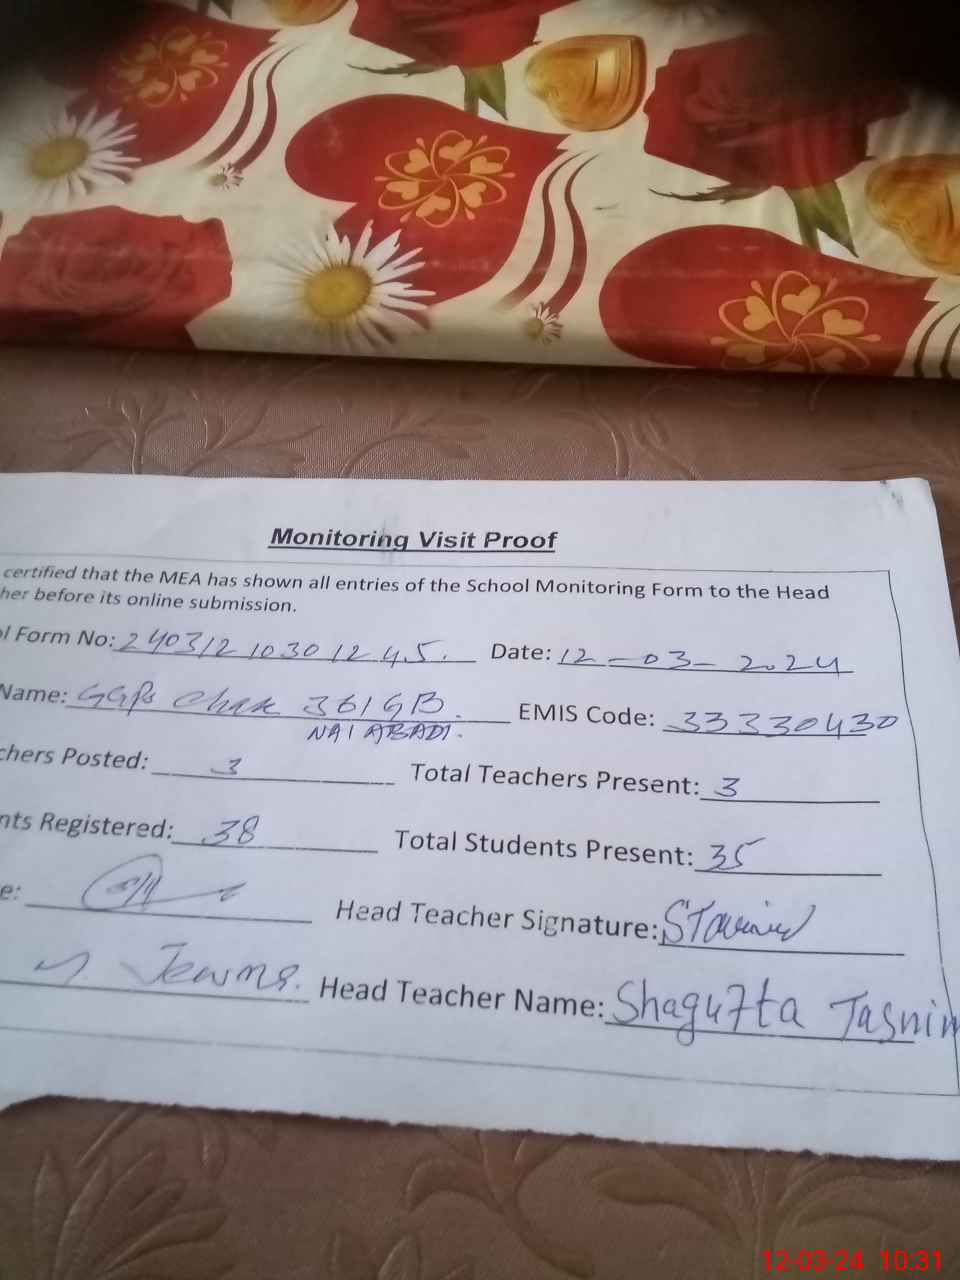 Monitoring Visit Proof
certified that the MEA has shown all entries of the School Monitoring Form to the Head
her before its online submission.
l Form No: 240312103012 45. Date: 12-03-2024
Name: GGPS Chak 361 GB. EMIS Code: 33330430
NAI ABADI.
chers Posted: 3 Total Teachers Present: 3
nts Registered: 38 Total Students Present: 35
e: Head Teacher Signature:
Head Teacher Name: Shagufta Tasnim
12-03-24 10:31